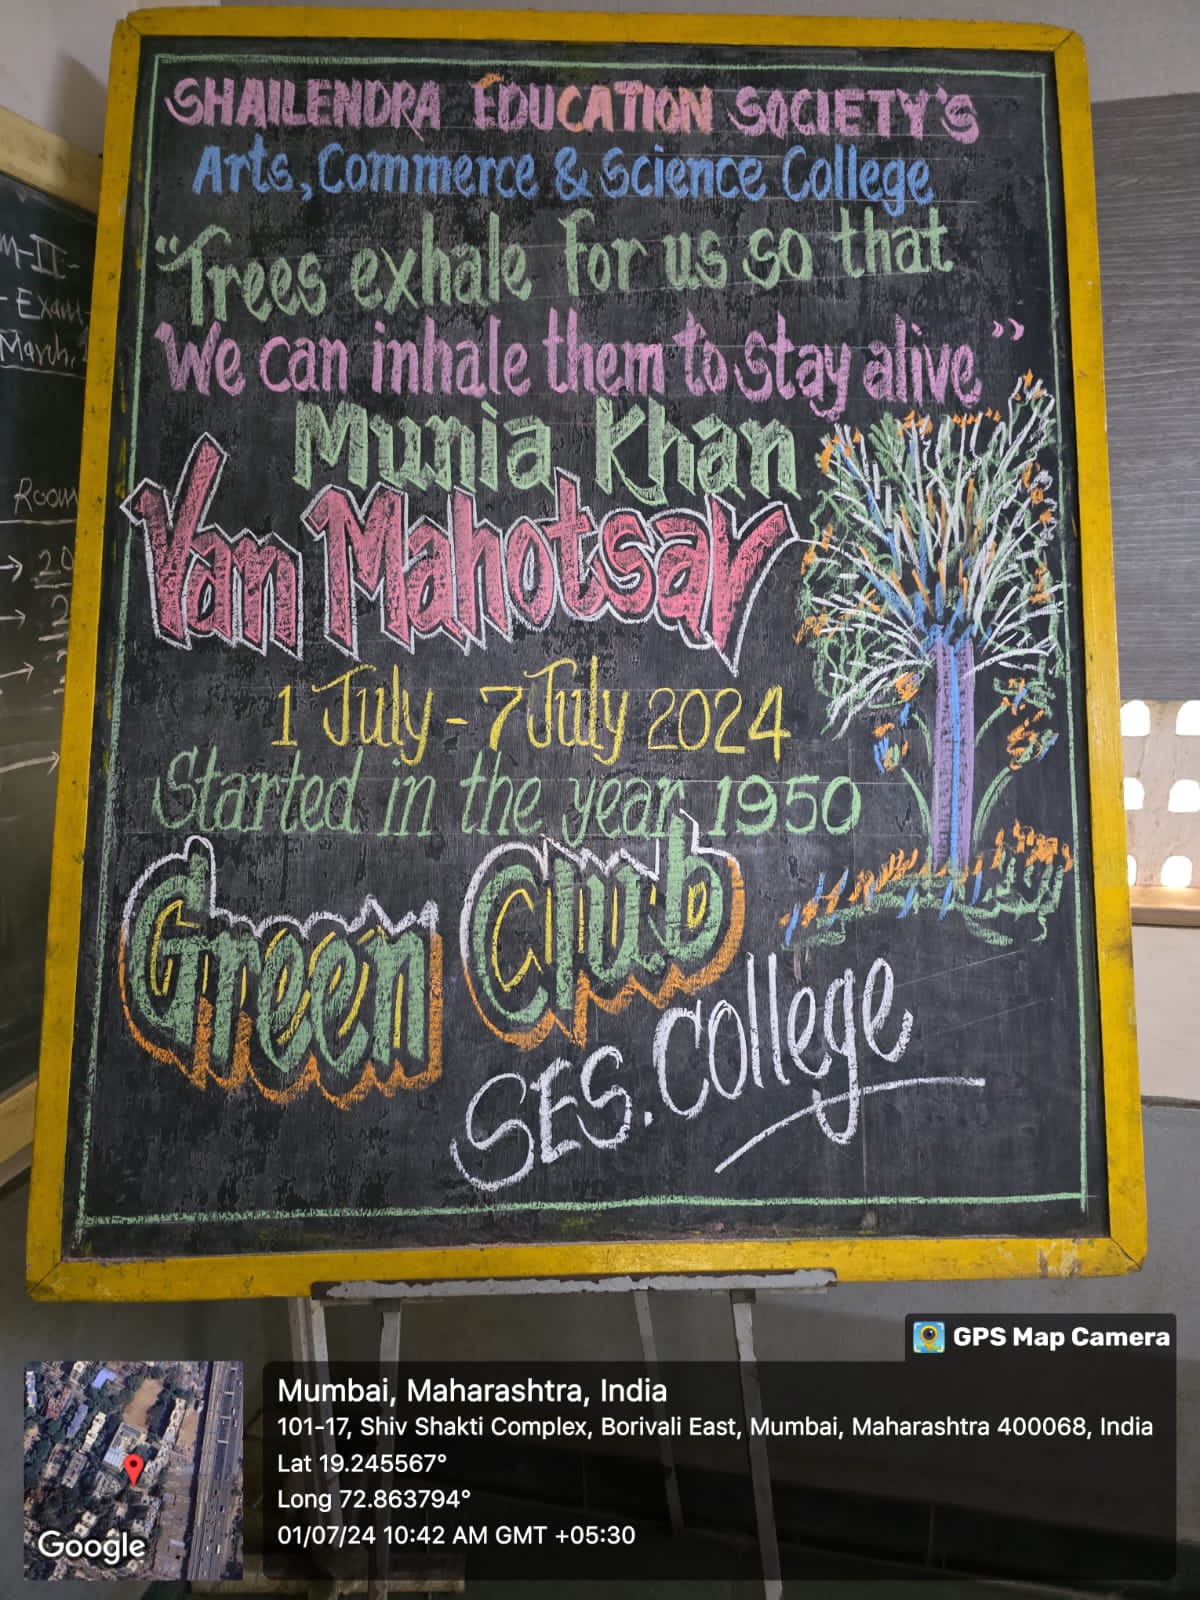 SHAILENDRA EDUCATION SOCIETY'S
Arts, Commerce & Science College
"Trees exhale for us so that
We can inhale them to stay alive"
Munia Khan
Van Mahotsav
1 July - 7 July 2024
Started in the year 1950
Green Club
SES. College
Exam
March,
Room
GPS Map Camera
Mumbai, Maharashtra, India
101-17, Shiv Shakti Complex, Borivali East, Mumbai, Maharashtra 400068, India
Lat 19.245567°
Long 72.863794°
01/07/24 10:42 AM GMT +05:30
Google